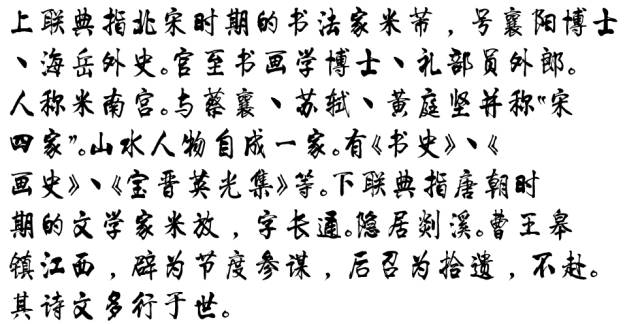 上联典指北宋时期的书法家米芾，号襄阳博士
、海岳外史。官至书画学博士、礼部员外郎。
人称米南宫。与蔡襄、苏轼、黄庭坚并称“宋
四家”。山水人物自成一家。有《书史》、《
画史》、《宝晋英光集》等。下联典指唐朝时
期的文学家米放，字长通。隐居剡溪。曹王皋
镇江西，辟为节度参谋，后召为拾遗，不赴。
其诗文多行于世。